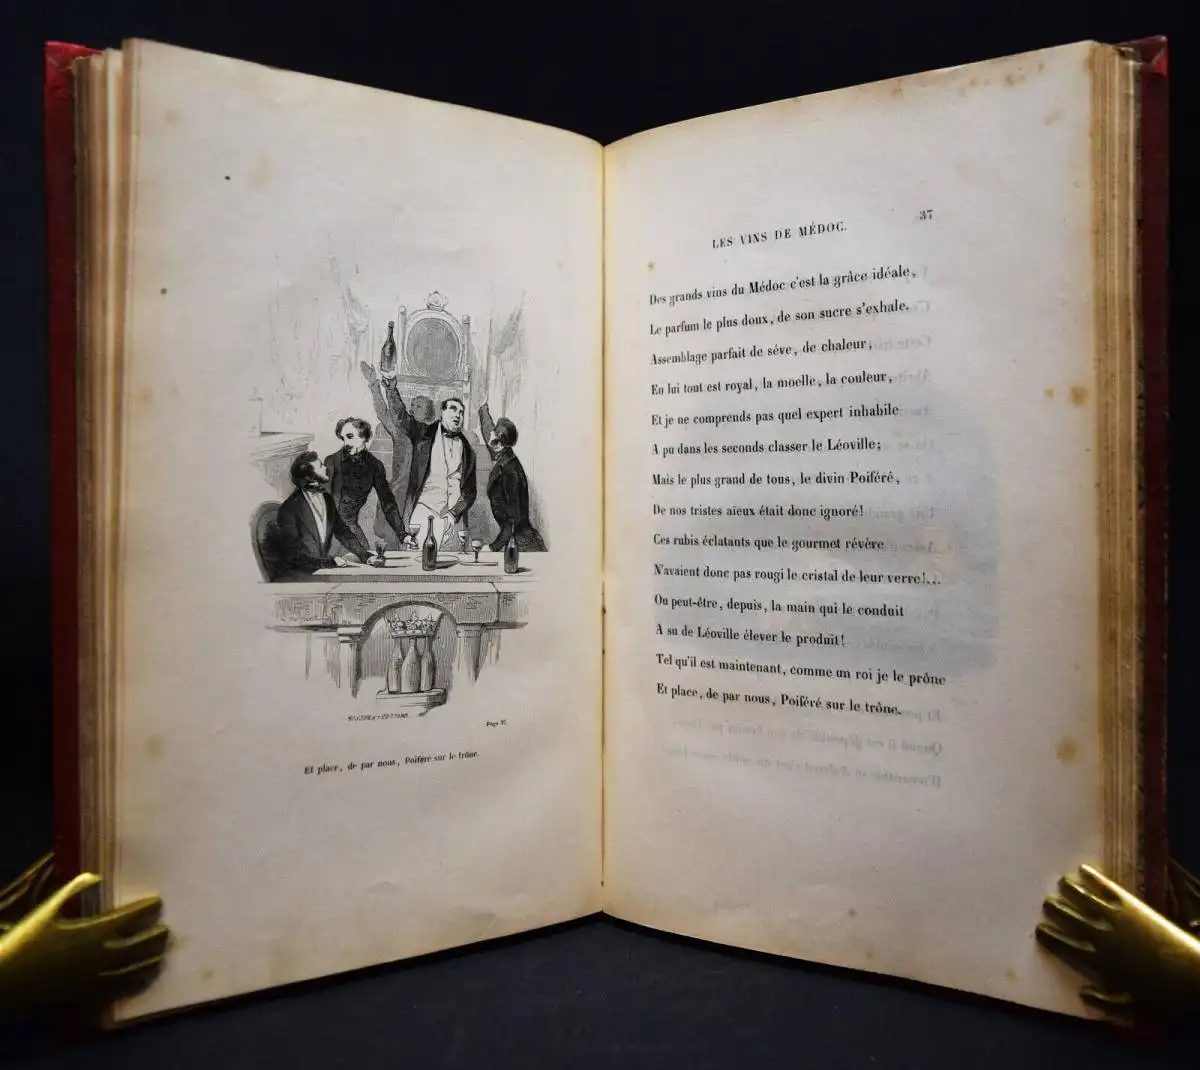 Page 37.
Et place, de par nous, Poiféré sur le trône.
LES VINS DE MÉDOC.
37
Des grands vins du Médoc c'est la grâce idéale,
Le parfum le plus doux, de son sucre s'exhale.
Assemblage parfait de séve, de chaleur,
En lui tout est royal, la moelle, la couleur,
Et je ne comprends pas quel expert inhabile
A pu dans les seconds classer le Léoville;
Mais le plus grand de tous, le divin Poiféré,
De nos tristes aïeux était donc ignoré!
Ces rubis éclatants que le gourmet révère
N'avaient donc pas rougi le cristal de leur verre!...
Ou peut-être, depuis, la main qui le conduit
A su de Léoville élever le produit!
Tel qu'il est maintenant, comme un roi je le prône
Et place, de par nous, Poiféré sur le trône.